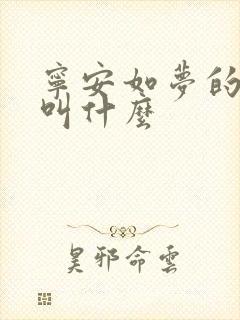 寧安如夢的
叫什麼
昊邪命雲